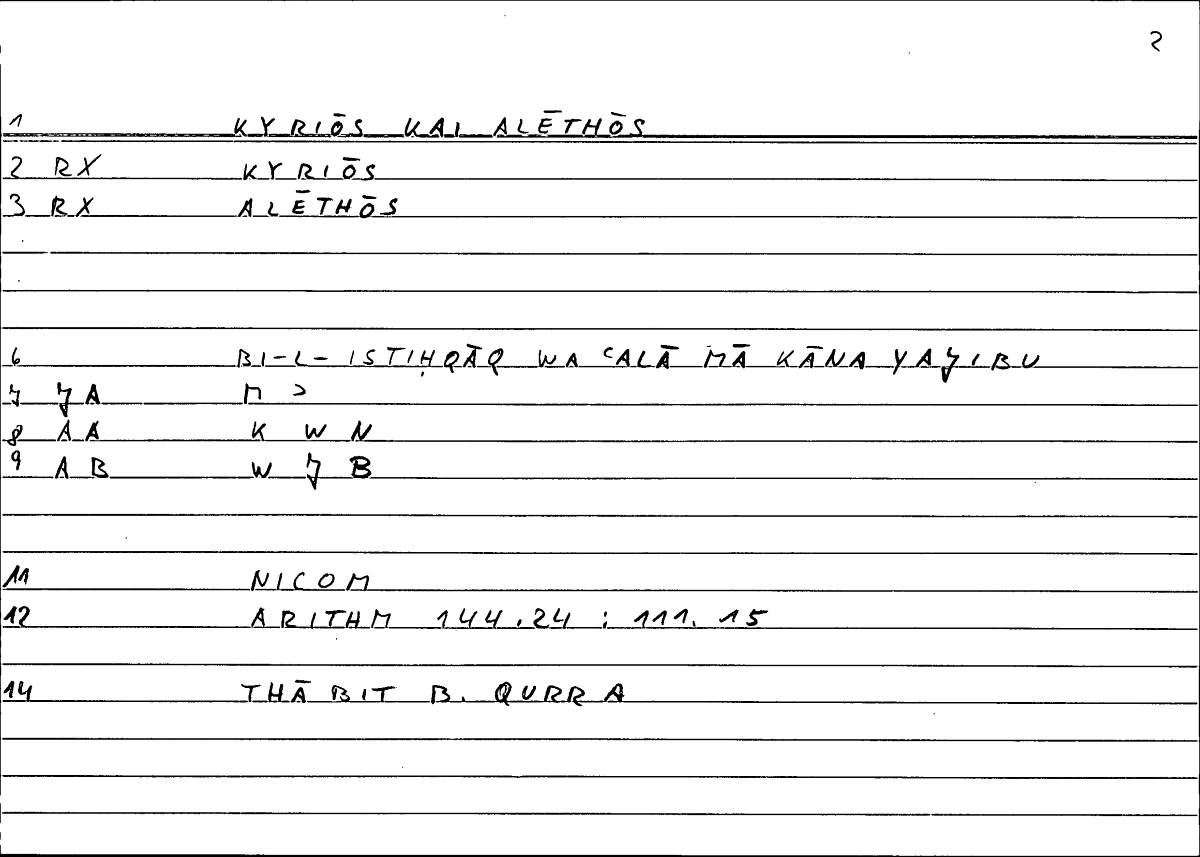 2
1 KYRIŌS KAI ALĒTHŌS
2 RX KYRIŌS
3 RX ALĒTHŌS
6 BI-L-ISTIḤQĀQ WA ʿALĀ MĀ KĀNA YAJIBU
7 JA Mʾ
8 AA K W N
9 AB W J B
11 NICOM
12 ARITHM 144.24 : 111.15
14 THĀBIT B. QURRA